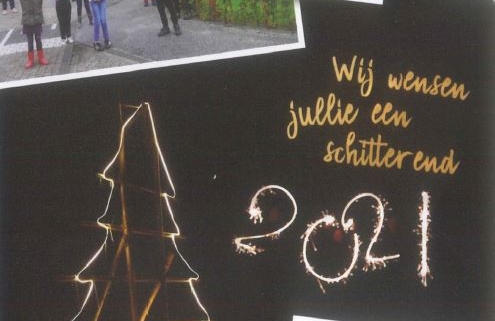 Wij wensen
jullie een
schitterend
2021